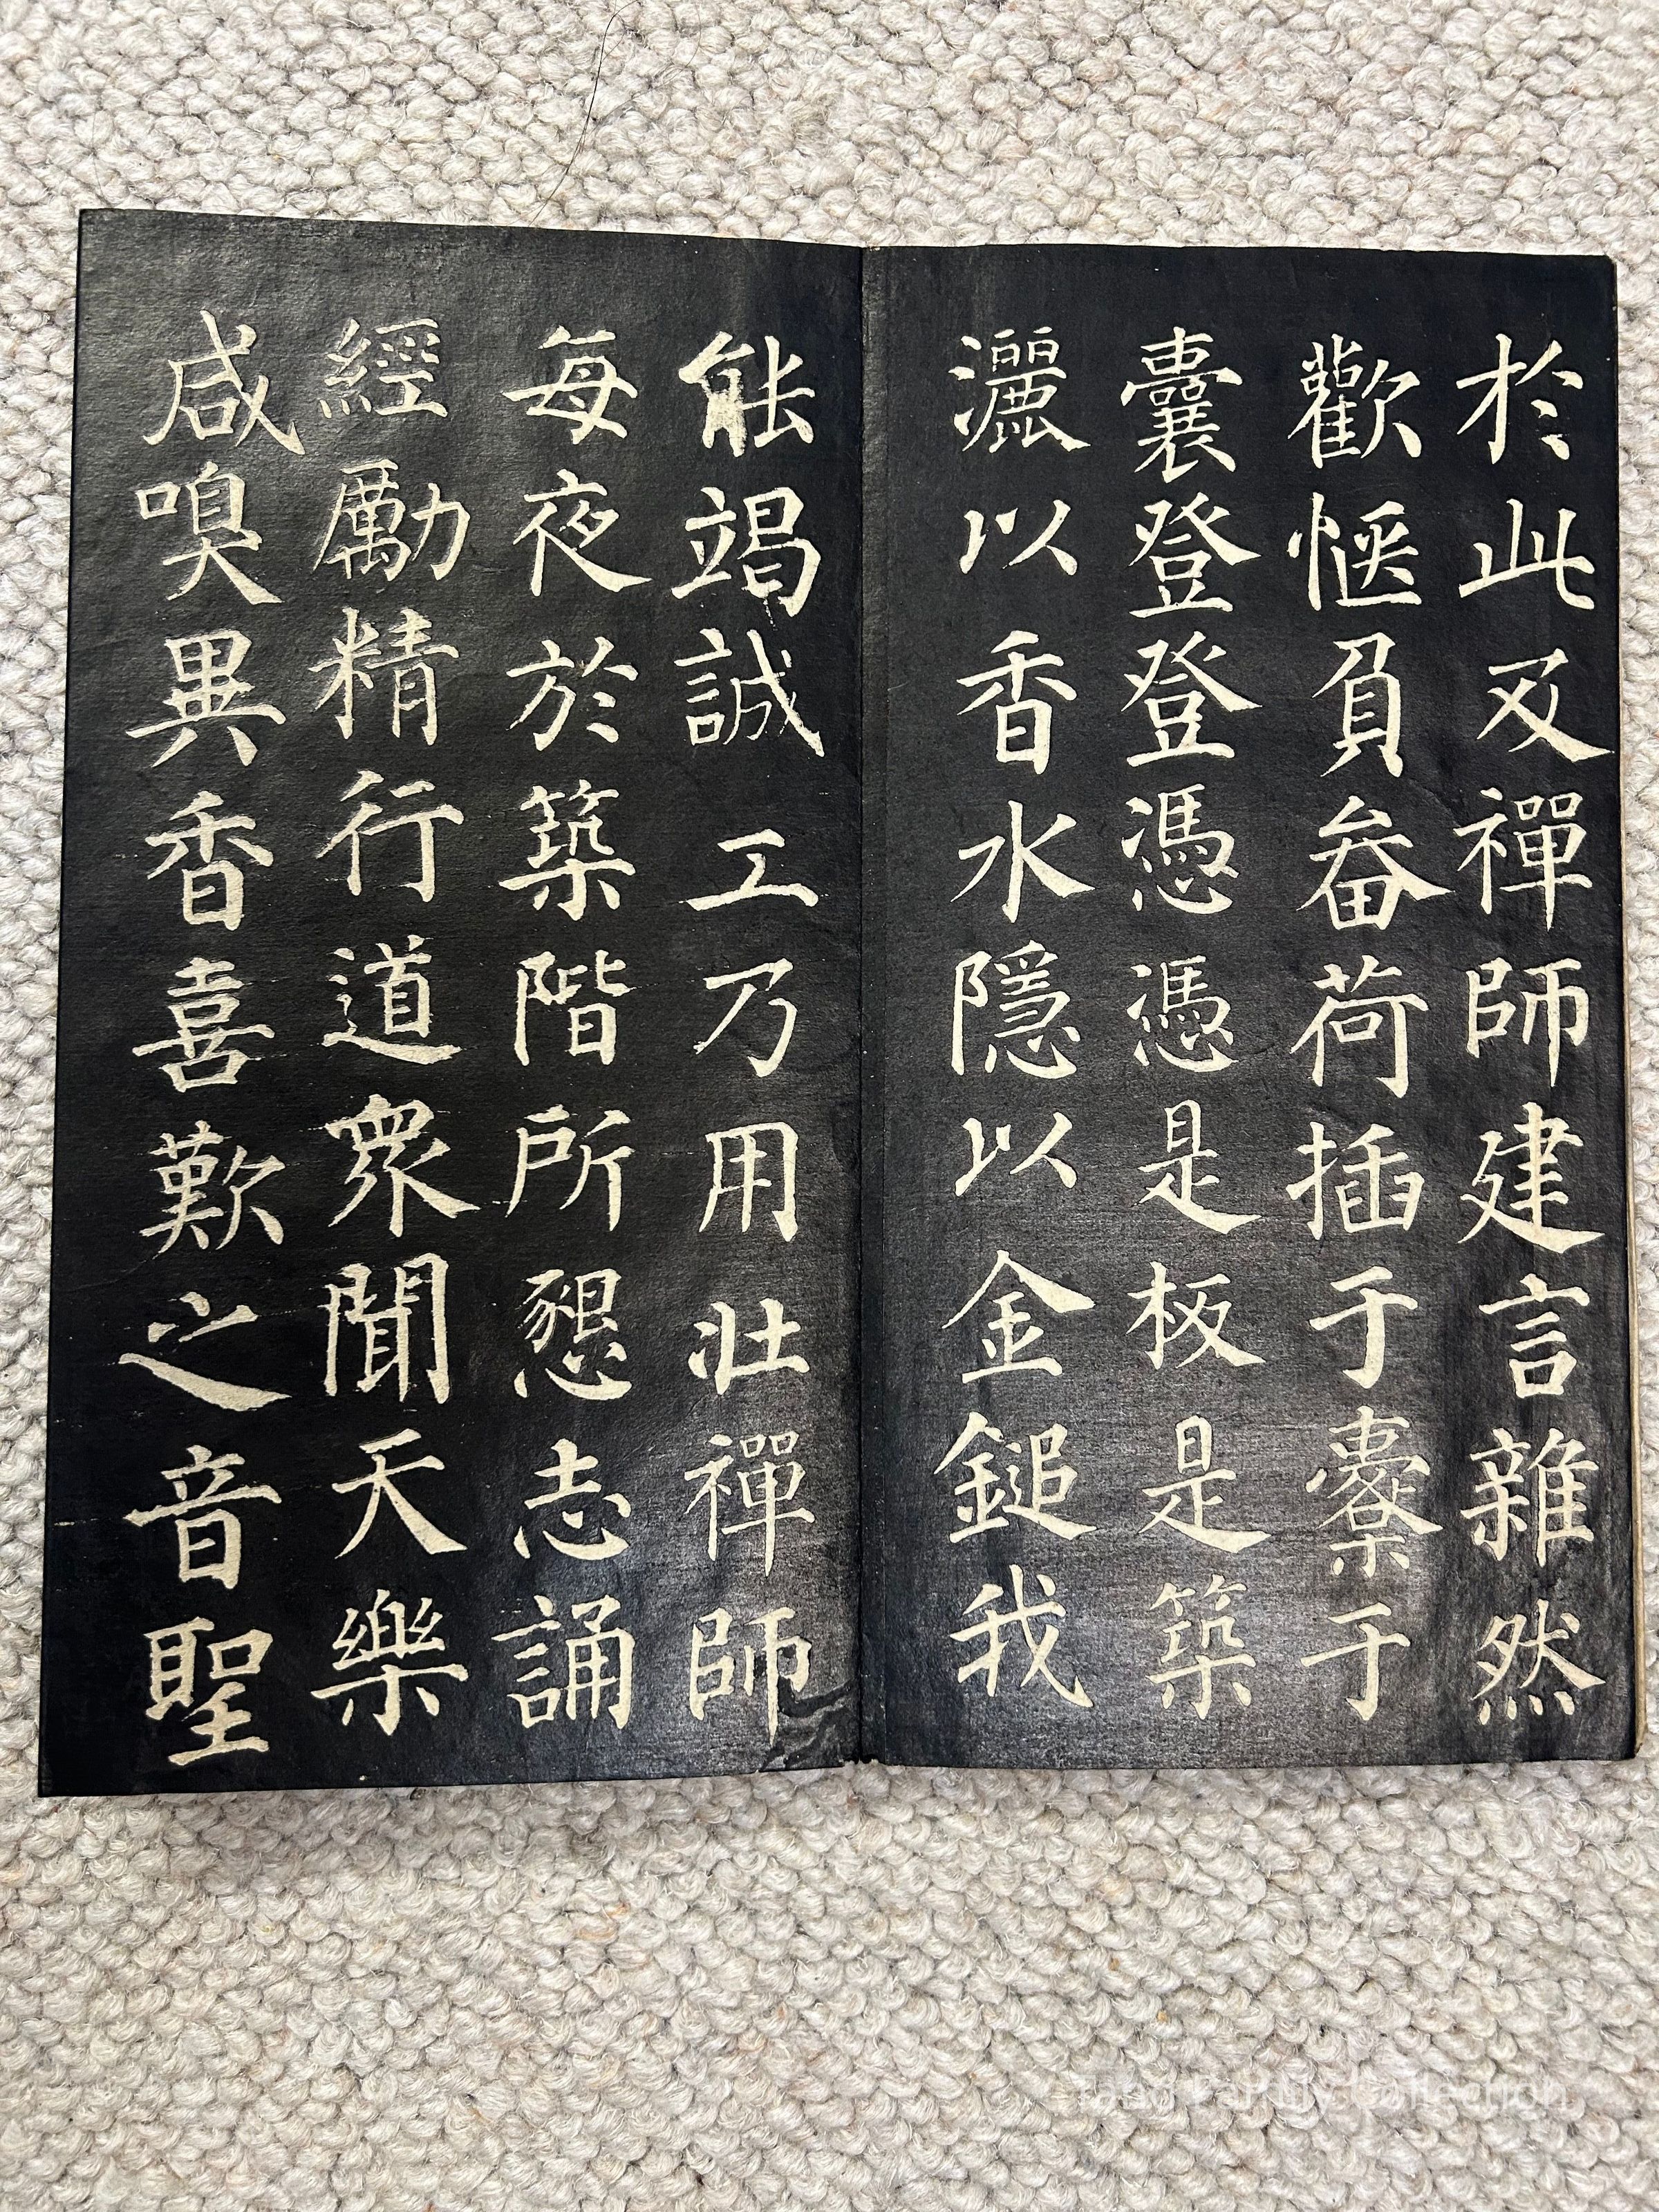 於此及禪師建言雜然
歡愜負畚荷插于橐于
囊登登憑憑是板是築
灑以香水隱以金鎚我
能竭誠工乃用壯禪師
每夜於築階所懇志誦
經勵精行道衆聞天樂
咸嗅異香喜歎之音聖
Tang Family Collection